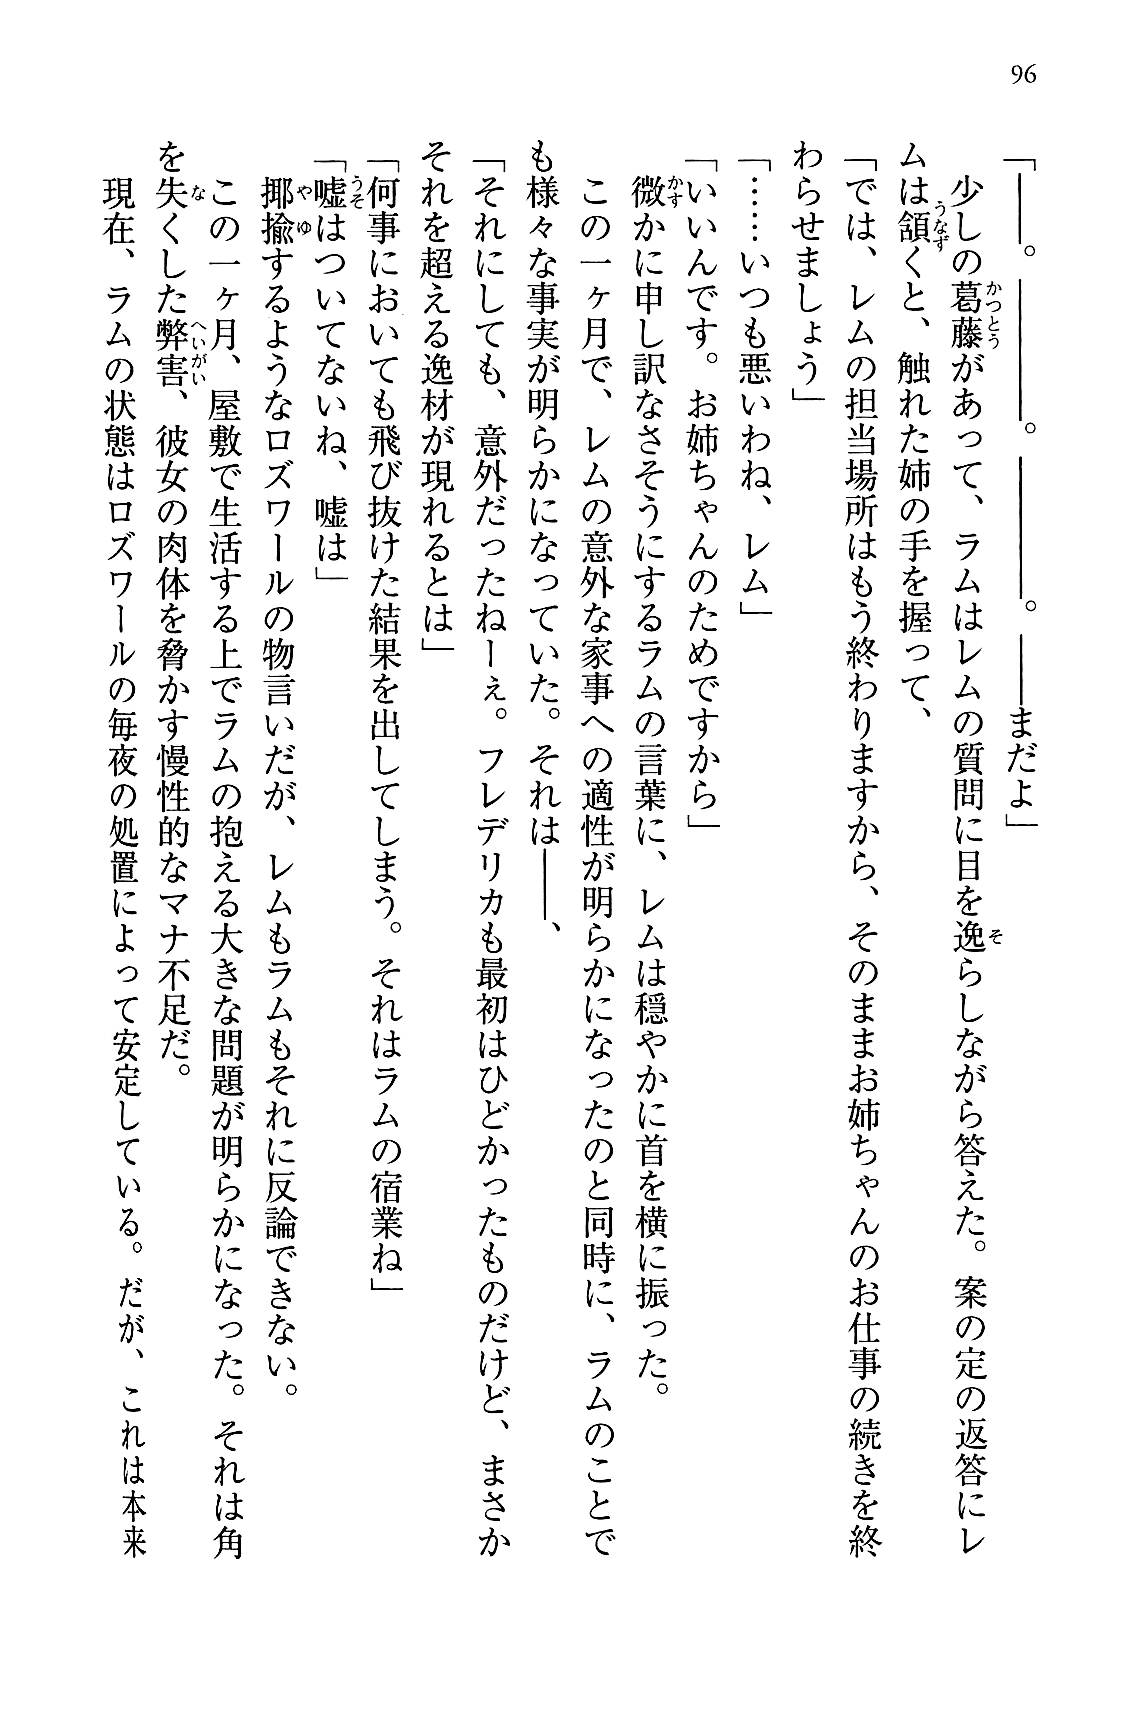 96
「――。――――。――――。――まだよ」
少しの葛藤があって、ラムはレムの質問に目を逸らしながら答えた。案の定の返答にレ
ムは頷くと、触れた姉の手を握って、
「では、レムの担当場所はもう終わりますから、そのままお姉ちゃんのお仕事の続きを終
わらせましょう」
「……いつも悪いわね、レム」
「いいんです。お姉ちゃんのためですから」
微かに申し訳なさそうにするラムの言葉に、レムは穏やかに首を横に振った。
この一ヶ月で、レムの意外な家事への適性が明らかになったのと同時に、ラムのことで
も様々な事実が明らかになっていた。それは――、
「それにしても、意外だったねーぇ。フレデリカも最初はひどかったものだけど、まさか
それを超える逸材が現れるとは」
「何事においても飛び抜けた結果を出してしまう。それはラムの宿業ね」
「嘘はついてないね、嘘は」
揶揄するようなロズワールの物言いだが、レムもラムもそれに反論できない。
この一ヶ月、屋敷で生活する上でラムの抱える大きな問題が明らかになった。それは角
を失くした弊害、彼女の肉体を脅かす慢性的なマナ不足だ。
現在、ラムの状態はロズワールの毎夜の処置によって安定している。だが、これは本来